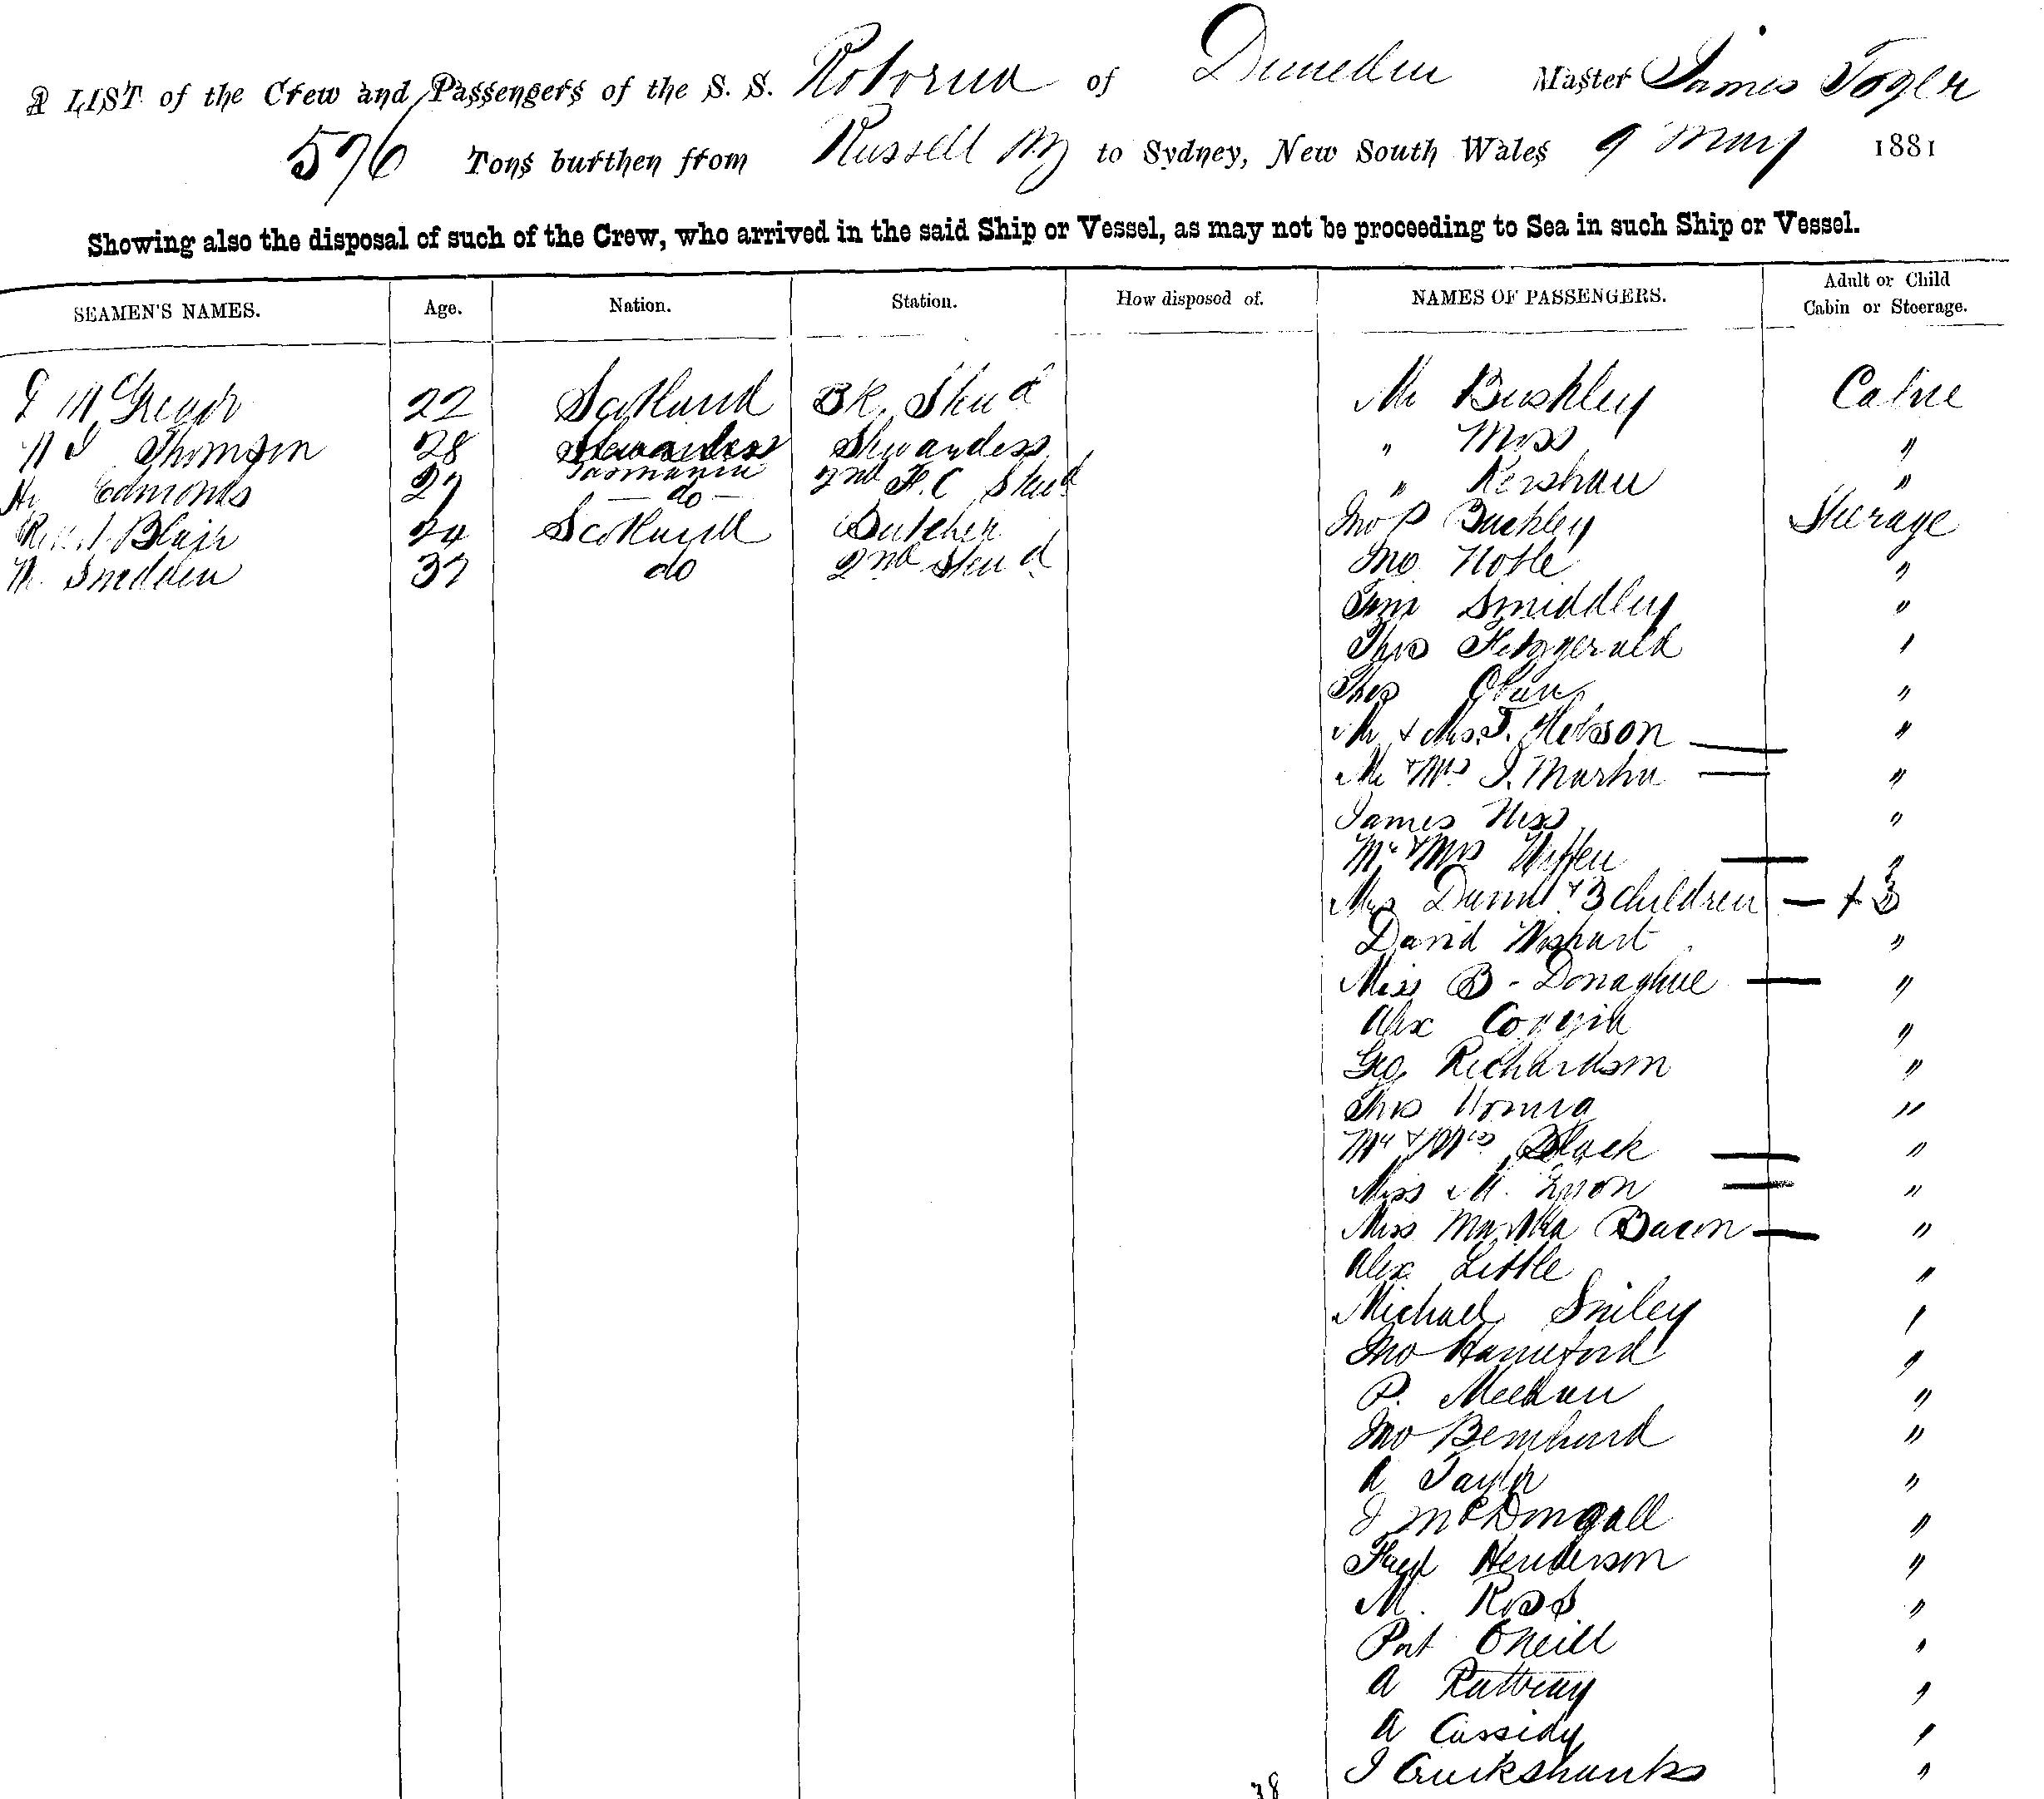 A LIST of the Crew and Passengers of the S. S. Rotorua of Dunedin Master James Toger
576 Tons burthen from Russell NZ to Sydney, New South Wales 9 May 1881
Showing also the disposal of such of the Crew, who arrived in the said Ship or Vessel, as may not be proceeding to Sea in such Ship or Vessel.
SEAMEN'S NAMES. Age. Nation. Station. How disposed of. NAMES OF PASSENGERS. Adult or Child Cabin or Steerage.
McGregor 22 Scotland BK. Stewd Mr Cabne
Thomson 28 Stewardess Stewardess " Moss "
Tasmania
Edmonds 27 do 2nd F.C Stewd " Kershaw "
Blair 24 Scotland Butcher Jno P Buckley Steerage
Snedden 37 do 2nd Stewd Jno Noble "
Smiddley "
Thos Fitzgerald "
Thos "
Mr & Mrs. T. Hobson — "
Mr & Mrs J. Martin — "
James "
Mr & Mrs —
Mrs Dunn & 3 children — + 3
David Wishart "
Miss B - Donaghue — "
Alex "
Geo Richardson "
Thos "
Mr & Mrs Black — "
Miss M. — "
Miss Martha Bacon — "
Alex Little "
Michael Smiley "
Jno Hanniford "
P. Meehan "
Jno Bernhard "
A Taylor "
J McDougall "
Henderson "
M. Ross "
Pat ONeill "
A Rattray "
A Cassidy "
J Cruikshanks "
38